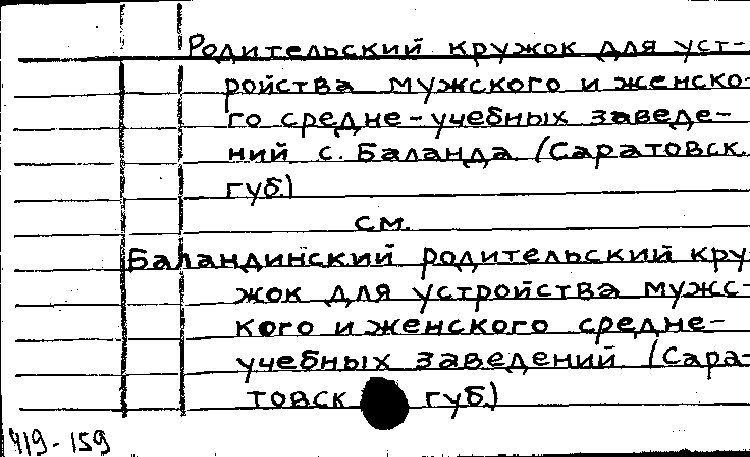 Родительский кружок для уст-
ройства мужского и женско-
го средне-учебных заведе-
ний с. Баланда (Саратовск.
губ.)
см.
Баландинский родительский кру
жок для устройства мужс-
кого и женского средне-
учебных заведений (Сара-
товск губ.)
419-159